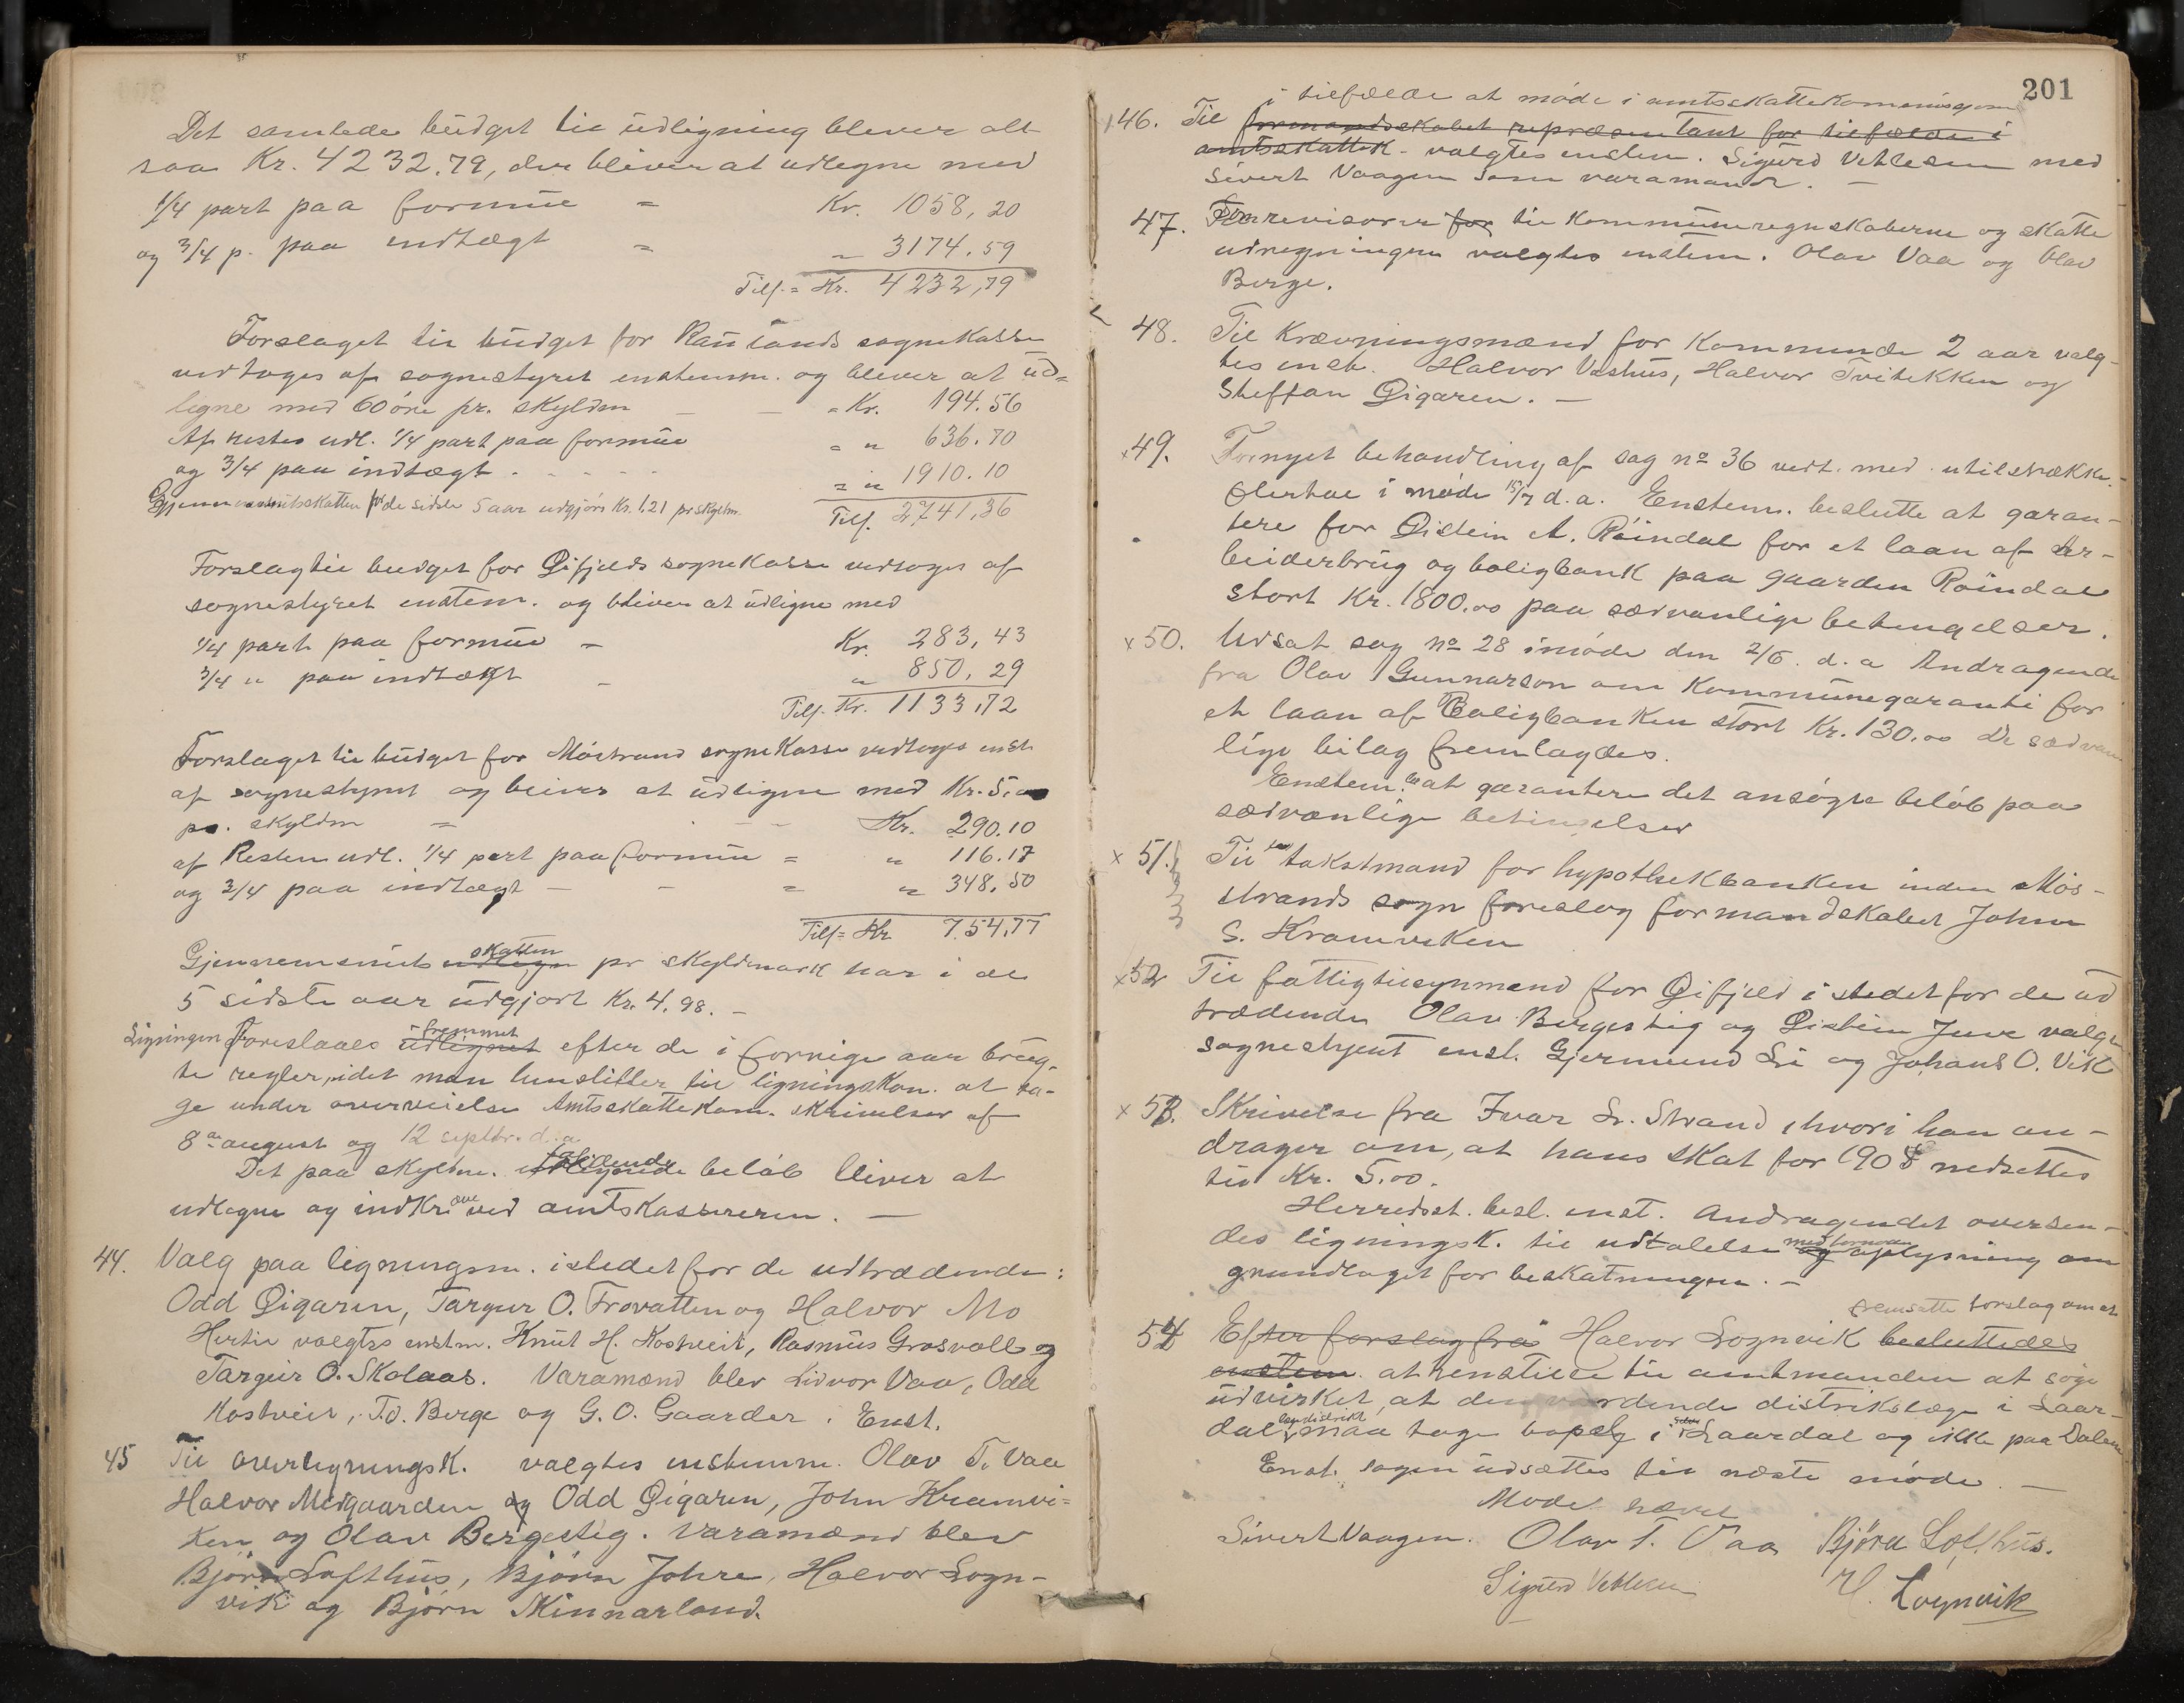 Det samlede budget til udligning bliver alt
saa Kr. 4232.79, der bliver at udlegne med
1/4 part paa formue = Kr. 1058,20
og 3/4 p. paa indtægt = " 3174.59
Tils. = Kr. 4232,79
Forslaget til budget for Raulands sognekasse
vedtoges af sognestyret enstemm. og bliver at ud=
ligne med 60 øre pr. skyldm — — = Kr. 194.56
Af resten udl. 1/4 part paa formue = " 636.70
og 3/4 paa indtægt = " 1910.10
Gjennemsnitsskatten for de sidste 5 aar udgjørs Kr. 1.21 pr skyldm. Tils. 2741,36
Forslag til budget for Øifjelds sognekasse vedtoges af
sognestyret enstem. og bliver at udligne med
1/4 part paa formue — Kr. 283,43
3/4 " paa indtægt — " 850,29
Tils. Kr. 1133,72
Forslaget til budget for Møstrand sognekasse vedtoges enst.
af sognestyret og bliver at udligne med Kr. 5.00
pr. skyldm = Kr. 290.10
af Resten udl. 1/4 part paa formue = " 116.17
og 3/4 paa indtægt — — = " 348.50
Tils = Kr 754,77
Gjennemsnits udlegn skatten pr skyldmark har i de
5 sidste aar udgjort Kr. 4.98. —
Ligningen Foreslaaes udlignet fremmet efter de i forrige aar brug-
te regler, idet man henstiller til ligningskom. at ta-
ge under overveielse Amtsskattekom. skrivelser af
8de august og 12 septbr. d.a
Det paa skyldm. faldende beløb bliver at
udlegne og indkræve ved amtskassereren. —
44. Valg paa ligningsm. istedet for de udtrædende:
Odd Øigaren, Targeir O. Frovatten og Halvor Mo
Hertil valgtes enstm. Knut H. Kostveit, Rasmus Grosvoll og
Targeir O. Skalaas. Varamænd blev Lidvor Vaa, Odd
Kostveit, T.d. Berge og G. O. Gaarder. Enst.
45 Til overligningsk. valgtes enstemm. Olav T. Vaa
Halvor Midgaarden og Odd Øigaren, John Kramvi=
ken og Olav Bergestig. Varamænd blev
Bjørn Lofthus, Bjørn Johre, Halvor Logn-
vik og Bjørn Skinnarland.
201
i tilfælde at møde i amtsskattekommisjonen
46. Til formandskabet repræsentant for tilfælde i
amtsskattek. valgtes enstem. Sigurd Vetlesen med
Sivert Vaagen som varamand. —
47. Til revisorer for til kommuneregnskaberne og skatte
udregningen valgtes enstem. Olav Vaa og Olav
Berge.
48. Til Krævningsmænd for kommende 2 aar valg-
tes enst. Halvor Vashus, Halvor Tvitekken og
Steffan Øigaren. —
x 49. Fornyet behandling af sag no 36 vedt. med utilstrække.
flertal i møde 15/7 d.a. Enstem. beslutte at garan-
tere for Øistein A. Røindal for et laan af Ar-
beiderbrug og boligbank paa gaarden Røindal
stort Kr. 1800.00 paa sædvanlige betingelser.
x 50. Udsat sag no 28 i møde den 2/6. d.a Andragende
fra Olav Gunnarson om kommunegaranti for
et laan af Boligbanken stort Kr. 130.00 De sædvan
lige bilag fremlagdes.
Enstem. bes at garantere det ansøgte beløb paa
sædvanlige betingelser
x 51. Til takstmand for hypothekbanken inden Møs-
strands sogn foreslog formandskabet John
S. Kramviken
x 52 Til fattigtilsynmænd for Øifjeld istedet for de ud
trædende Olav Bergestig og Øistein Juve valgte
sognestyret enst. Gjermund Li og Johans O. Vik
x 53. Skrivelse fra Ivar Sr. Strand, hvori han an-
drager om, at hans skat for 1908 nedsettes
til Kr. 5.00.
Herredsst. besl. enst. Andragendet oversen-
des ligningsk. til udtalelse og med fornøden oplysning om
grundlaget for beskatningen. —
fremsatte forslag om at
54 Efter forslag fra Halvor Lognvik besluttedes
enstem. at henstille til amtmanden at søge
udvirket, at den vordende distrikslæge i Laar-
dal lægedistrikt maa tage bopæl i Laardal og ikke paa Dalen
Enst. sagen udsættes til næste møde. —
Møde hævet
Sivert Vaagen. Olav T. Vaa Bjørn Lofthus.
Sigurd Vetlesen H. Lognvik